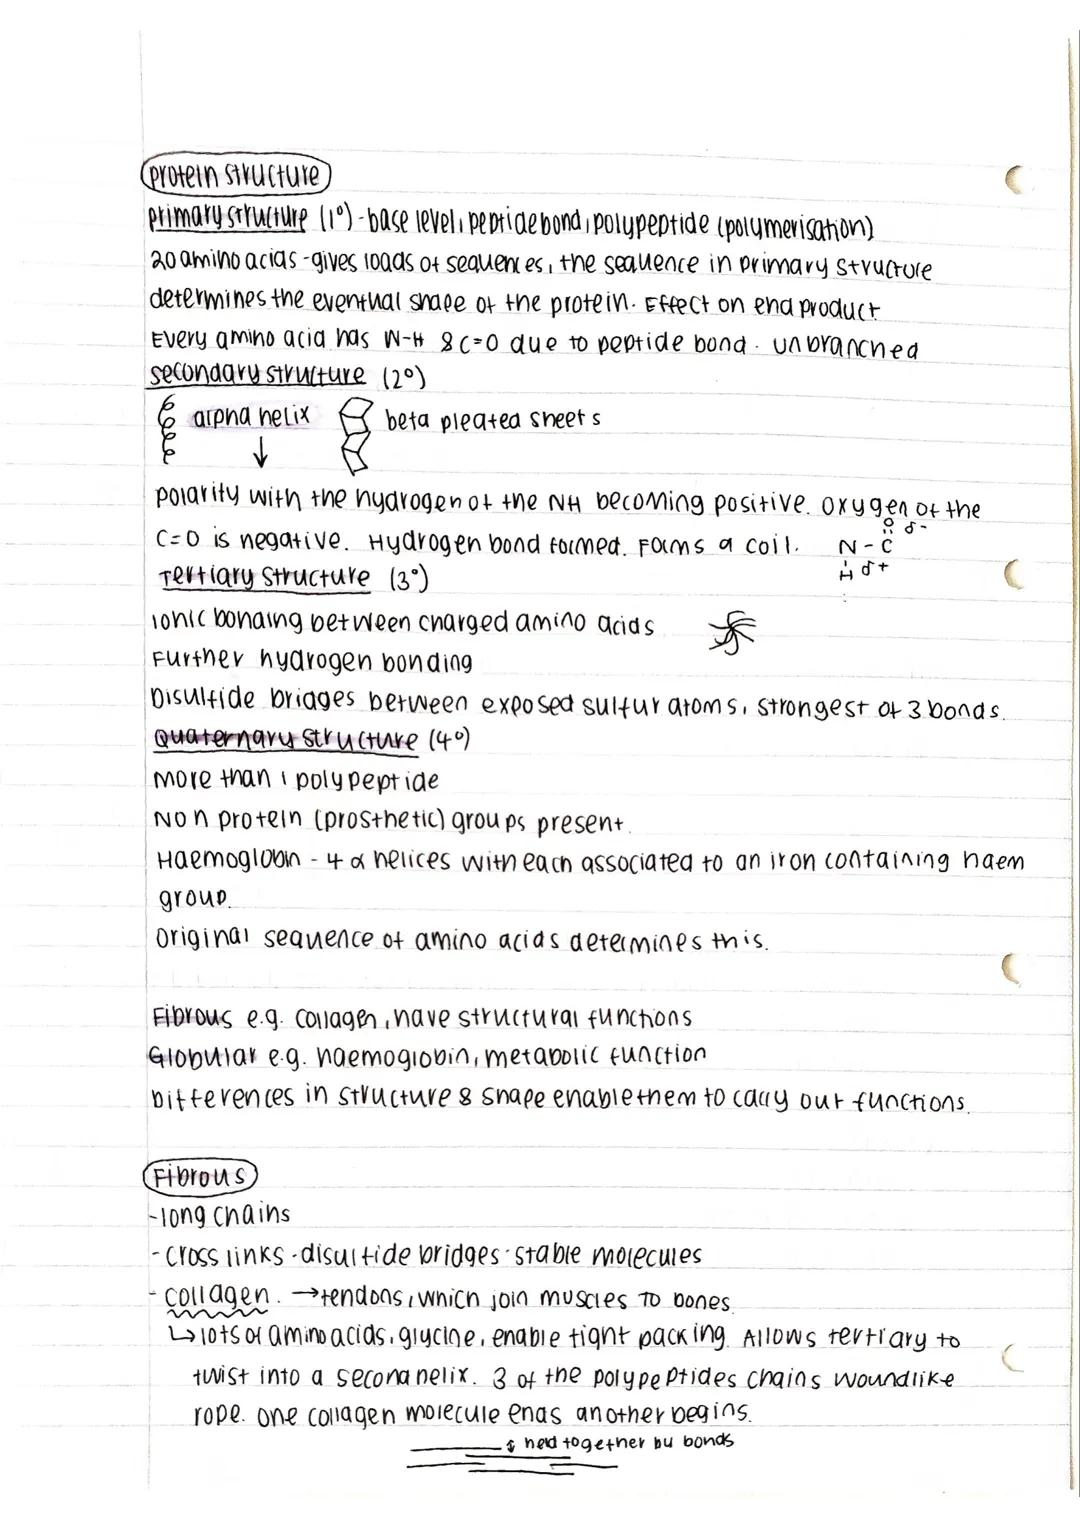 protein structure
primary structure (1°) - base level, peptide bond, polypeptide (polymerisation)
20 amino acids - gives loads of sequences, the sequence in primary structure
determines the eventual shape of the protein. Effect on end product
Every amino acid has N-H & C=O due to peptide bond. unbranched
secondary structure (2°)
alpha helix beta pleated sheets
↓
polarity with the hydrogen of the NH becoming positive. oxygen of the
C=O is negative. Hydrogen bond formed. Forms a coil.
O δ-
N - C
H δ+
Tertiary structure (3°)
ionic bonding between charged amino acids
Further hydrogen bonding
Disulfide bridges between exposed sulfur atoms, strongest of 3 bonds.
Quaternary structure (4°)
more than 1 polypeptide
Non protein (prosthetic) groups present.
Haemoglobin - 4 α helices with each associated to an iron containing haem
group.
Original sequence of amino acids determines this.
Fibrous e.g. collagen, have structural functions
Globular e.g. haemoglobin, metabolic function
Differences in structure & shape enable them to carry out functions.
Fibrous
- long chains
- cross links · disulfide bridges · stable molecules
- collagen. → tendons, which join muscles to bones
↳ lots of amino acids, glycine, enable tight packing. Allows tertiary to
twist into a second helix. 3 of the polypeptides chains wound like
rope. one collagen molecule ends another begins.
held together by bonds